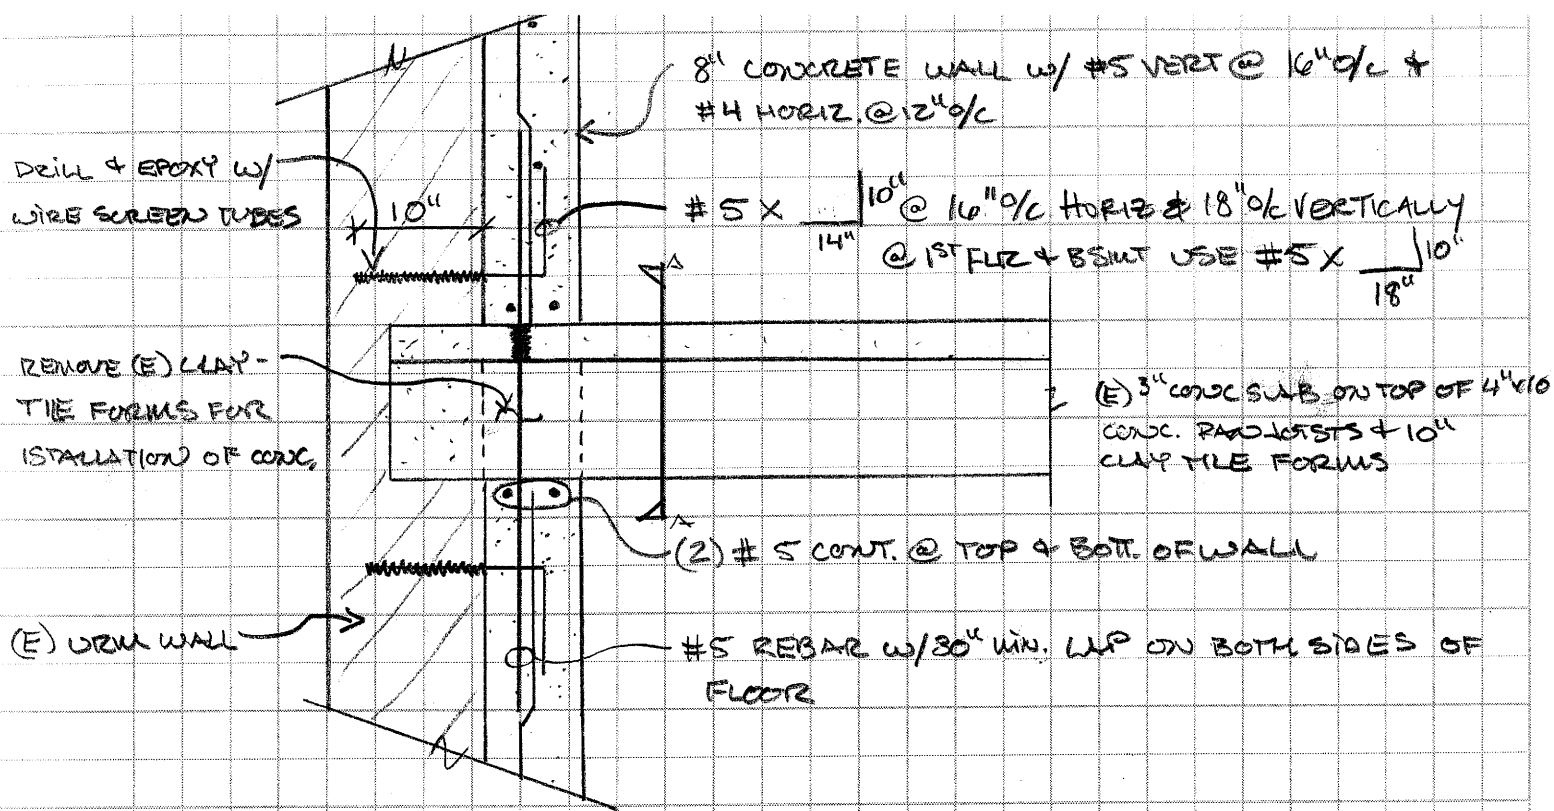 8" CONCRETE WALL W/ #5 VERT @ 16" O/C &
#4 HORIZ. @ 12" O/C
DRILL & EPOXY W/
WIRE SCREEN TUBES
10"
#5 X 14" 10" @ 16" O/C HORIZ & 18" O/C VERTICALLY
@ 1ST FLR & BSMT USE #5 X 18" 10"
A
REMOVE (E) CLAY-
TILE FORMS FOR
ISTALLATION OF CONC.
(E) 3" CONC SLAB ON TOP OF 4"X10
CONC. PAN JOISTS & 10"
CLAY TILE FORMS
A
(2) #5 CONT. @ TOP & BOTT. OF WALL
(E) URM WALL
#5 REBAR W/30" MIN. LAP ON BOTH SIDES OF
FLOOR